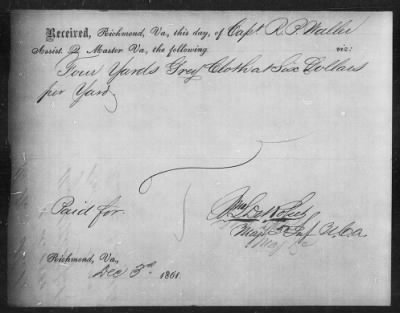 Received, Richmond, Va., this day, of Capt. R. P. Waller
Assist. Q. Master Va., the following viz:
Four Yards Grey Cloth at Six Dollars
per Yard
Paid for
Maj
Richmond, Va.,
Dec 3rd 1861.